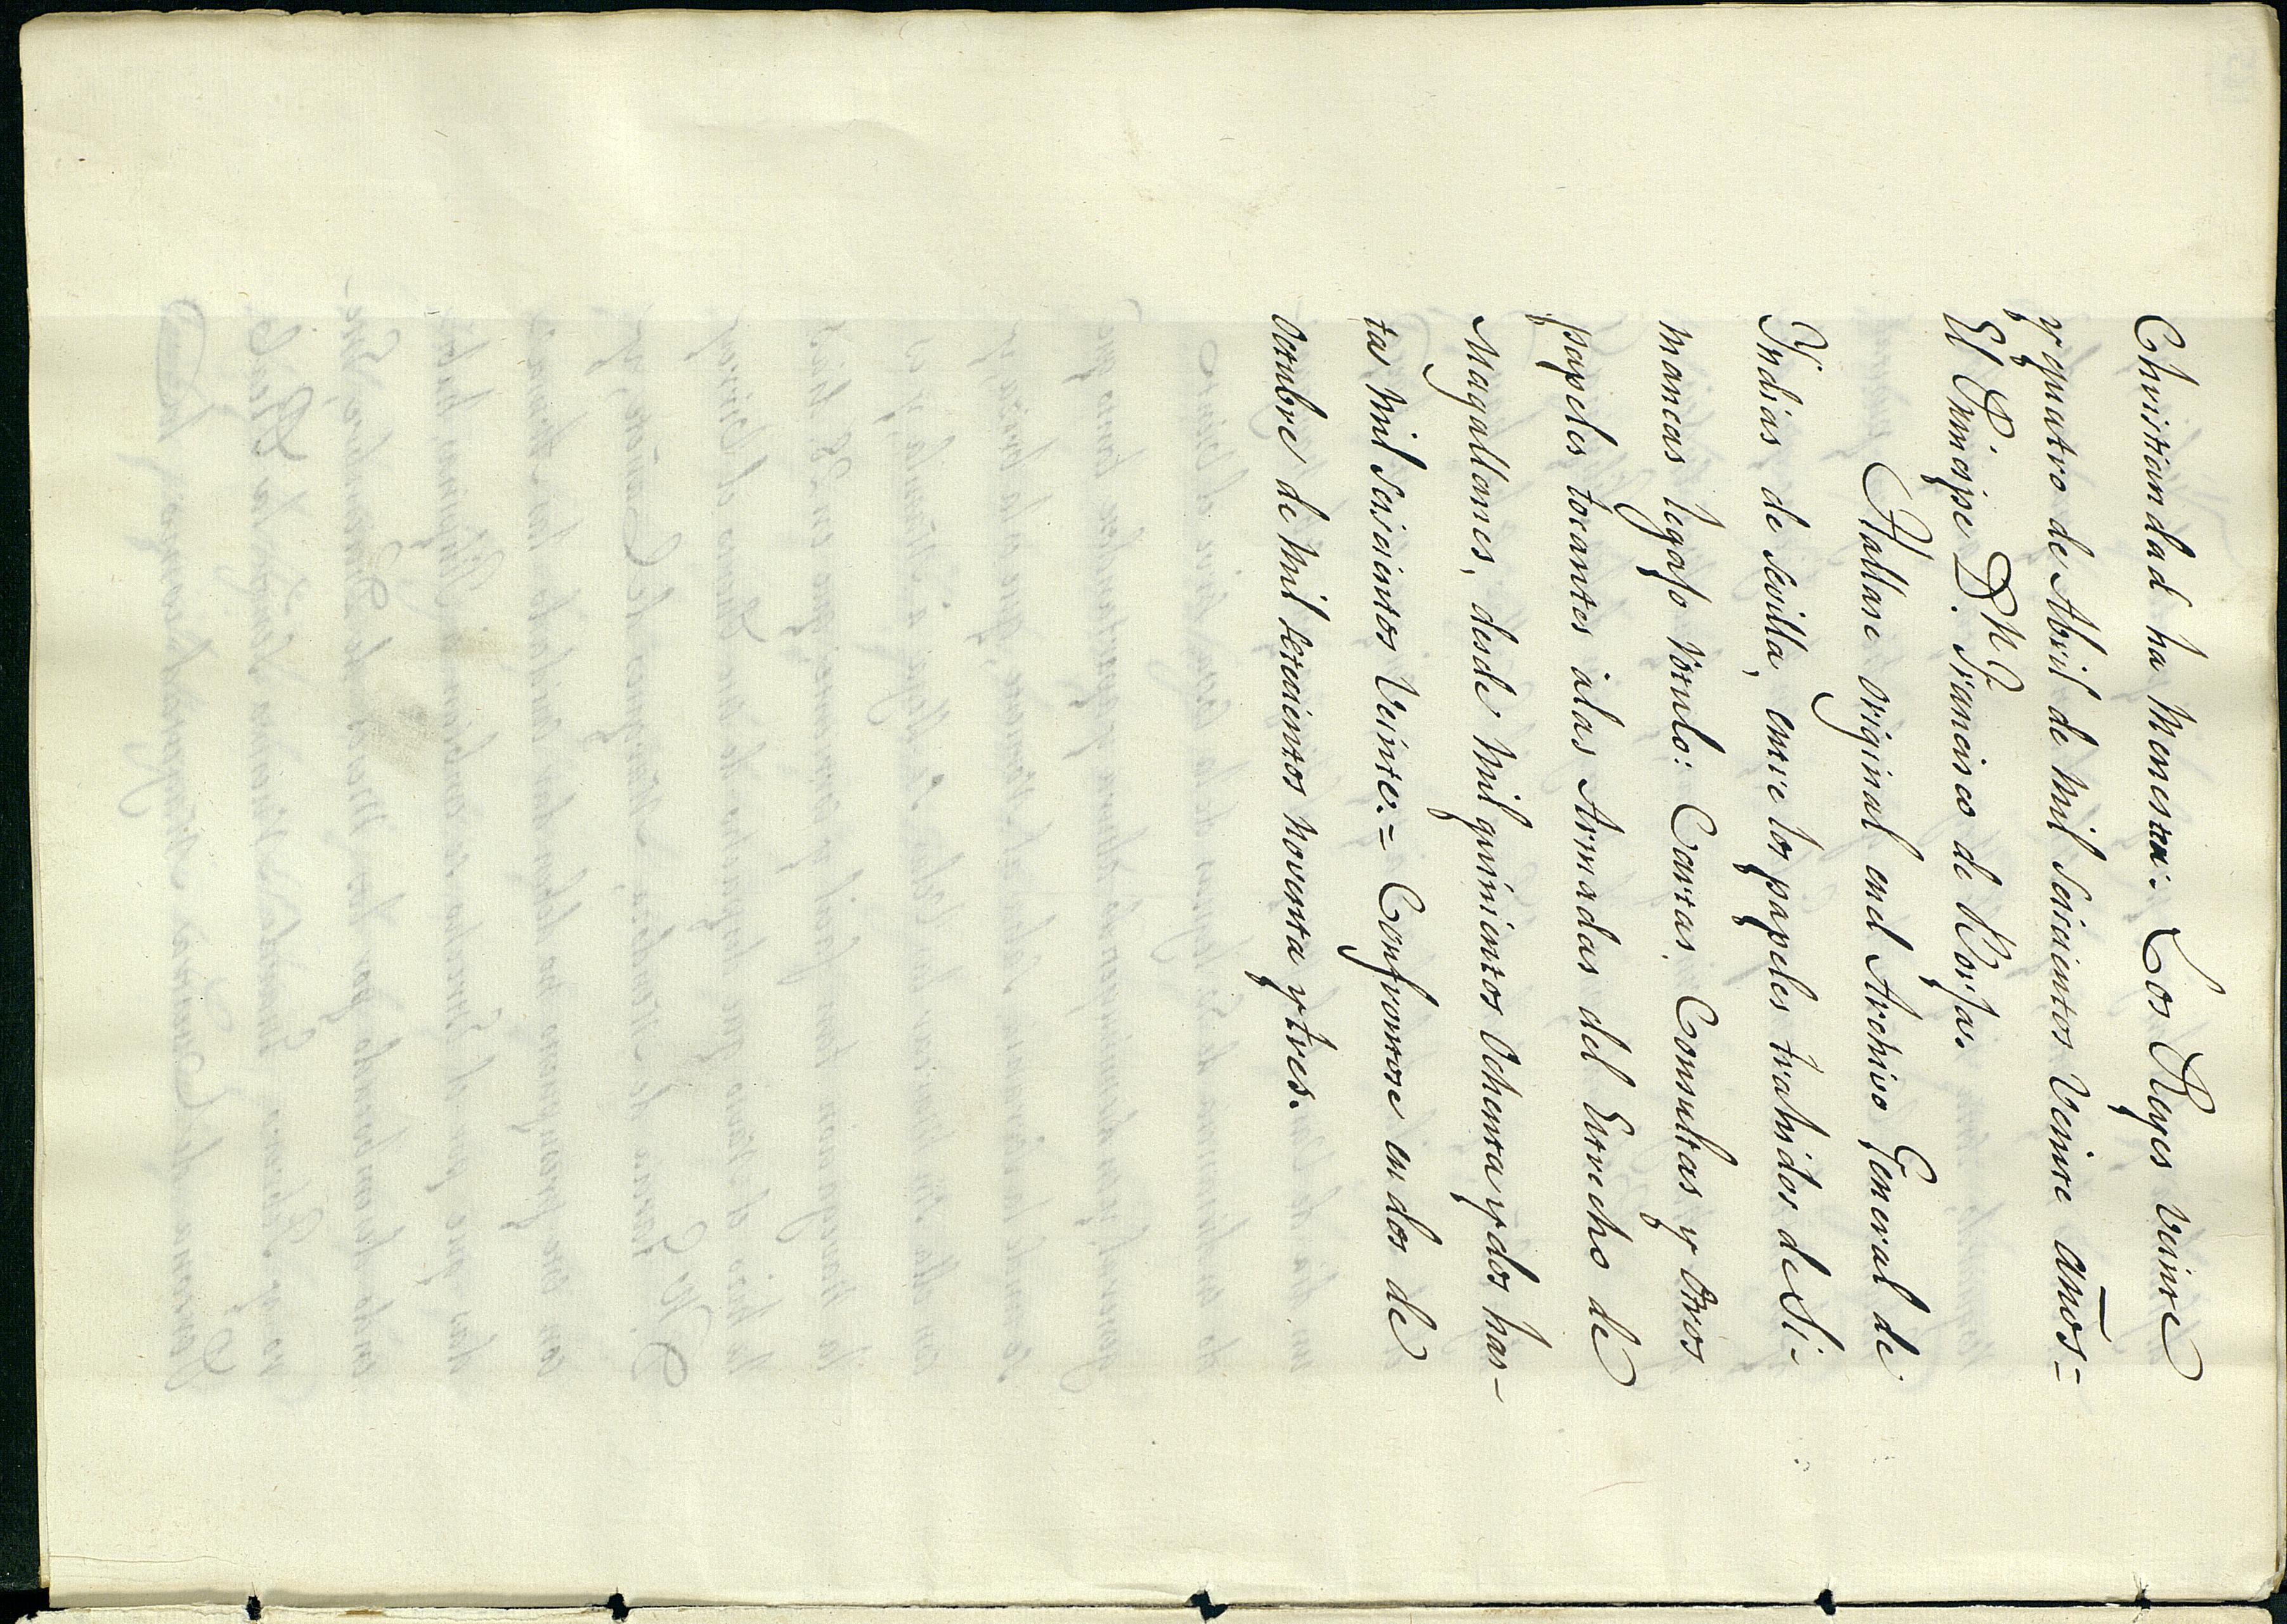 Christiandad ha Menester: Los Reyes veinte
y quatro de Abril de mil seiscientos Veinte años =
El Principe Dn. Francisco de Borja.
Hallase original en el Archivo General de
Yndias de Sevilla, entre los papeles trahidos de Si-
mancas legajo rótulo: Cartas, Consultas y otros
papeles tocantes alas Armadas del Estrecho de
Magallanes, desde mil quinientos Ochenta y dos has-
ta mil Seiscientos Veinte: = Confrontose en dos de
Octubre de mil setecientos noventa y tres.